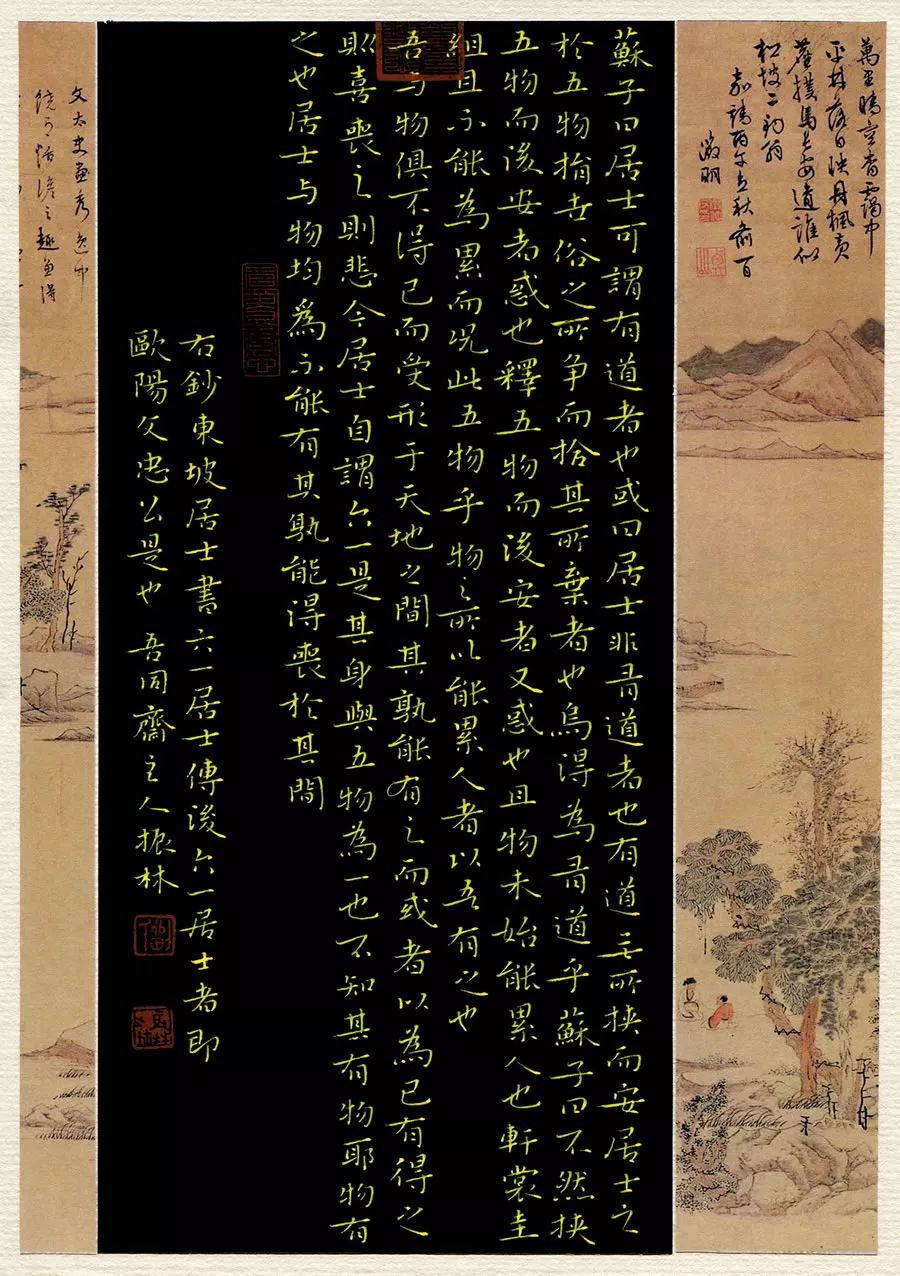 萬里晴空杳靄中
平林落日映丹楓黃
塵撲馬長安道誰似
松坡二釣翁
嘉靖丙午立秋前一日
徵明
蘇子曰居士可謂有道者也或曰居士非有道者也有道无所挾而安居士之
於五物捐世俗之所争而拾其所棄者也烏得為有道乎蘇子曰不然挾
五物而後安者惑也釋五物而後安者又惑也且物未始能累人也軒裳圭
組且不能為累而況此五物乎物之所以能累人者以吾有之也
吾与物俱不得已而受形于天地之間其孰能有之而或者以為已有得之
則喜喪之則悲今居士自謂六一是其身與五物為一也不知其有物耶物有
之也居士与物均為不能有其孰能得喪於其間
右鈔東坡居士書六一居士傳後六一居士者即
歐陽文忠公是也 吾同齋主人振林
文太史畫秀逸中
饒有恬澹之趣